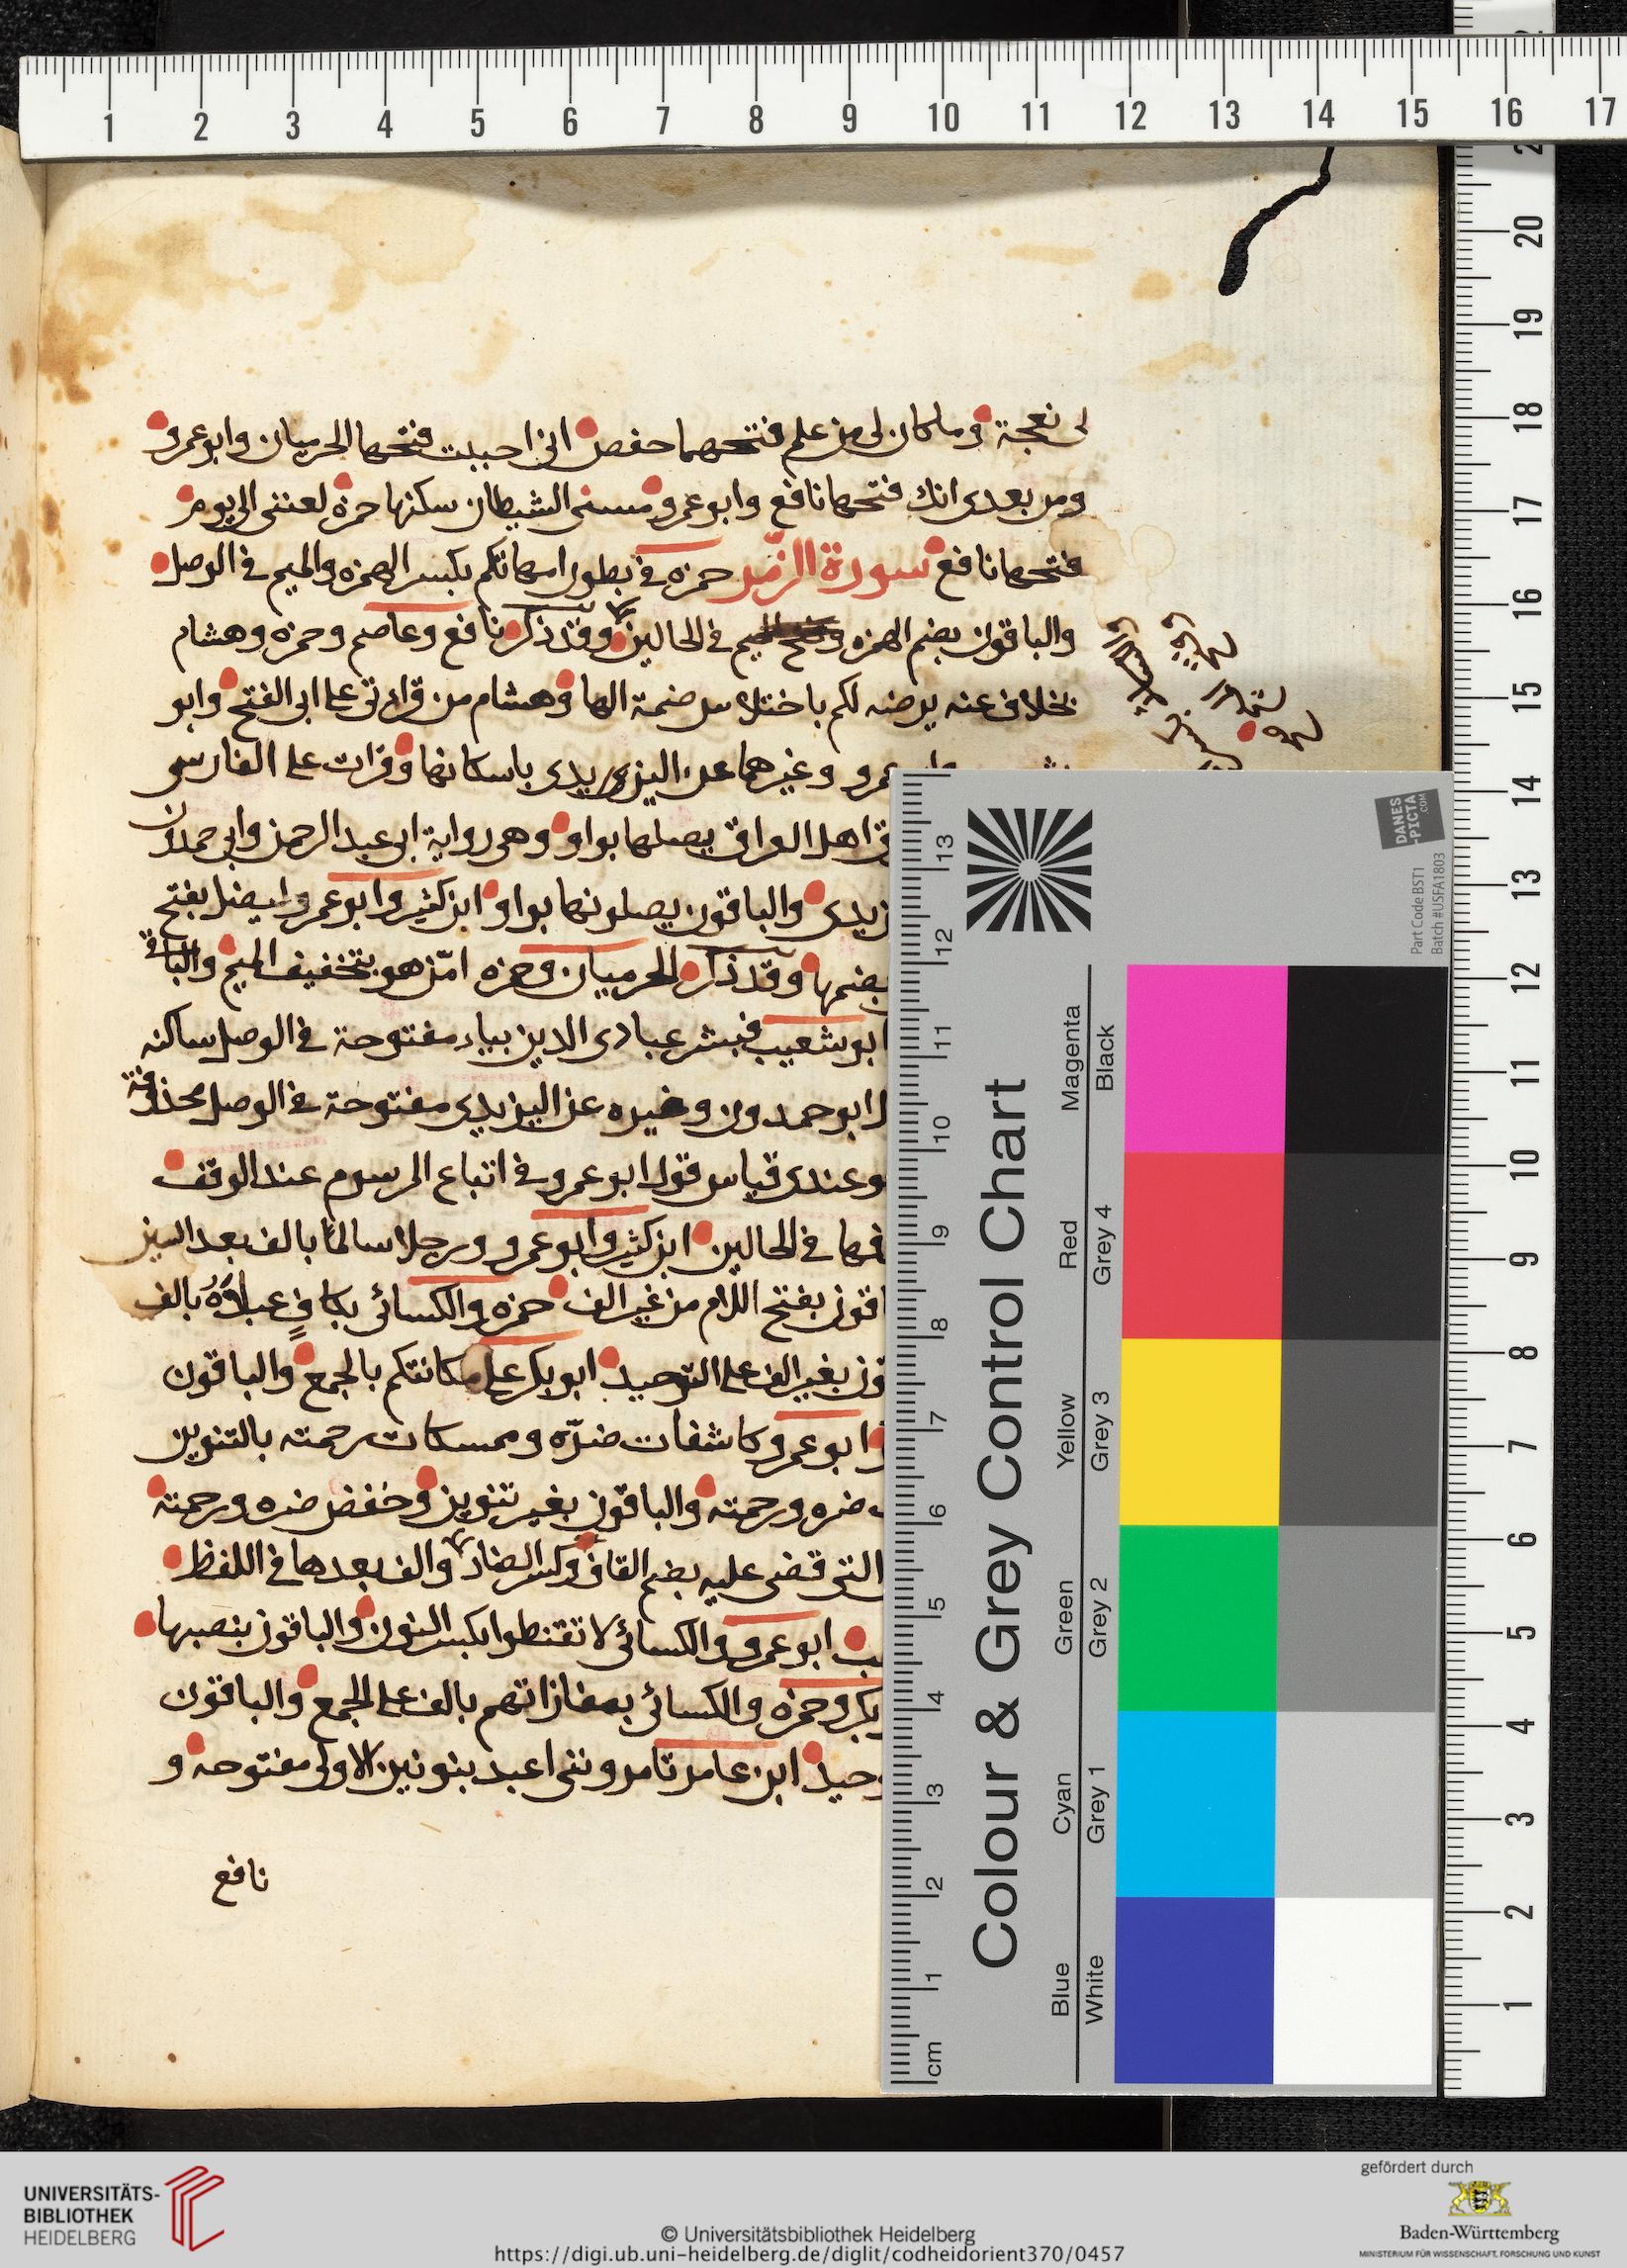 1 2 3 4 5 6 7 8 9 10 11 12 13 14 15 16 17
لى نعجة وما كان لى من علم فتحهما حفص انى احببت فتحها الحرميان وابو عمرو
ومن بعدى انك فتحها نافع وابو عمرو مسنى الشيطان سكنها حمزة لعنتى الى يوم
فتحها نافع سورة الزمر حمزه فى بطون امهاتكم بكسر الهمزه والميم فى الوصل
والباقون بضم الهمزه وفتح الميم فى الحالين وقد ذكر نافع وعاصم وحمزه وهشام
بخلاف عنه يرضه لكم باختلاس ضمة الها وهشام من قراءتى على ابى الفتح وابو
عمرو وغيرهما عن اليزيدى باسكانها وقرات على الفارسى
اهل العراق يصلها بواو وهى رواية ابى عبد الرحمن وابى حمدون
زيدى والباقون يصلونها بواو ابن كثير وابو عمرو ليضل بفتح
بضمها وقد ذكر الحرميان وحمزه امن هو بتخفيف الميم والباق
ابو شعيب فبشر عبادى الدين بياء مفتوحة فى الوصل ساكنه
ابو حمدون وغيره عن اليزيدى مفتوحة فى الوصل محذوفة
و عندى قياس قول ابو عمرو فى اتباع المرسوم عند الوقف
فها فى الحالين ابن كثير وابو عمرو ورجلا سالما بالف بعد السين
اقون بفتح اللام من غير الف حمزه والكسائى بكاف عباده بالف
قون بغير الف على التوحيد ابو بكر على مكانتكم بالجمع والباقون
ابو عمرو كاشفات ضره وممسكات رحمته بالتنوين
ضره ورحمته والباقون بغير تنوين وخفض ضره ورحمته
التى قضى عليه بضم القاف وكسر الضاد والف بعدها فى اللفظ
ب ابو عمرو والكسائى لا تقنطوا بكسر النون والباقون بنصبها
بكر وحمزه والكسائى بمفازاتهم بالف على الجمع والباقون
وحيد ابن عامر تامروننى اعبد بنونين الاولى مفتوحه و
نافع
20 19 18 17 16 15 14 13 12 11 10 9 8 7 6 5 4 3 2 1
DANES PICTA .COM
Part Code BST1
Batch #USFA1803
Colour & Grey Control Chart
Magenta Red Yellow Green Cyan Blue
Black Grey 4 Grey 3 Grey 2 Grey 1 White
13 12 11 10 9 8 7 6 5 4 3 2 1 cm
UNIVERSITÄTS-
BIBLIOTHEK
HEIDELBERG
© Universitätsbibliothek Heidelberg
https://digi.ub.uni-heidelberg.de/diglit/codheidorient370/0457
gefördert durch
Baden-Württemberg
MINISTERIUM FÜR WISSENSCHAFT, FORSCHUNG UND KUNST